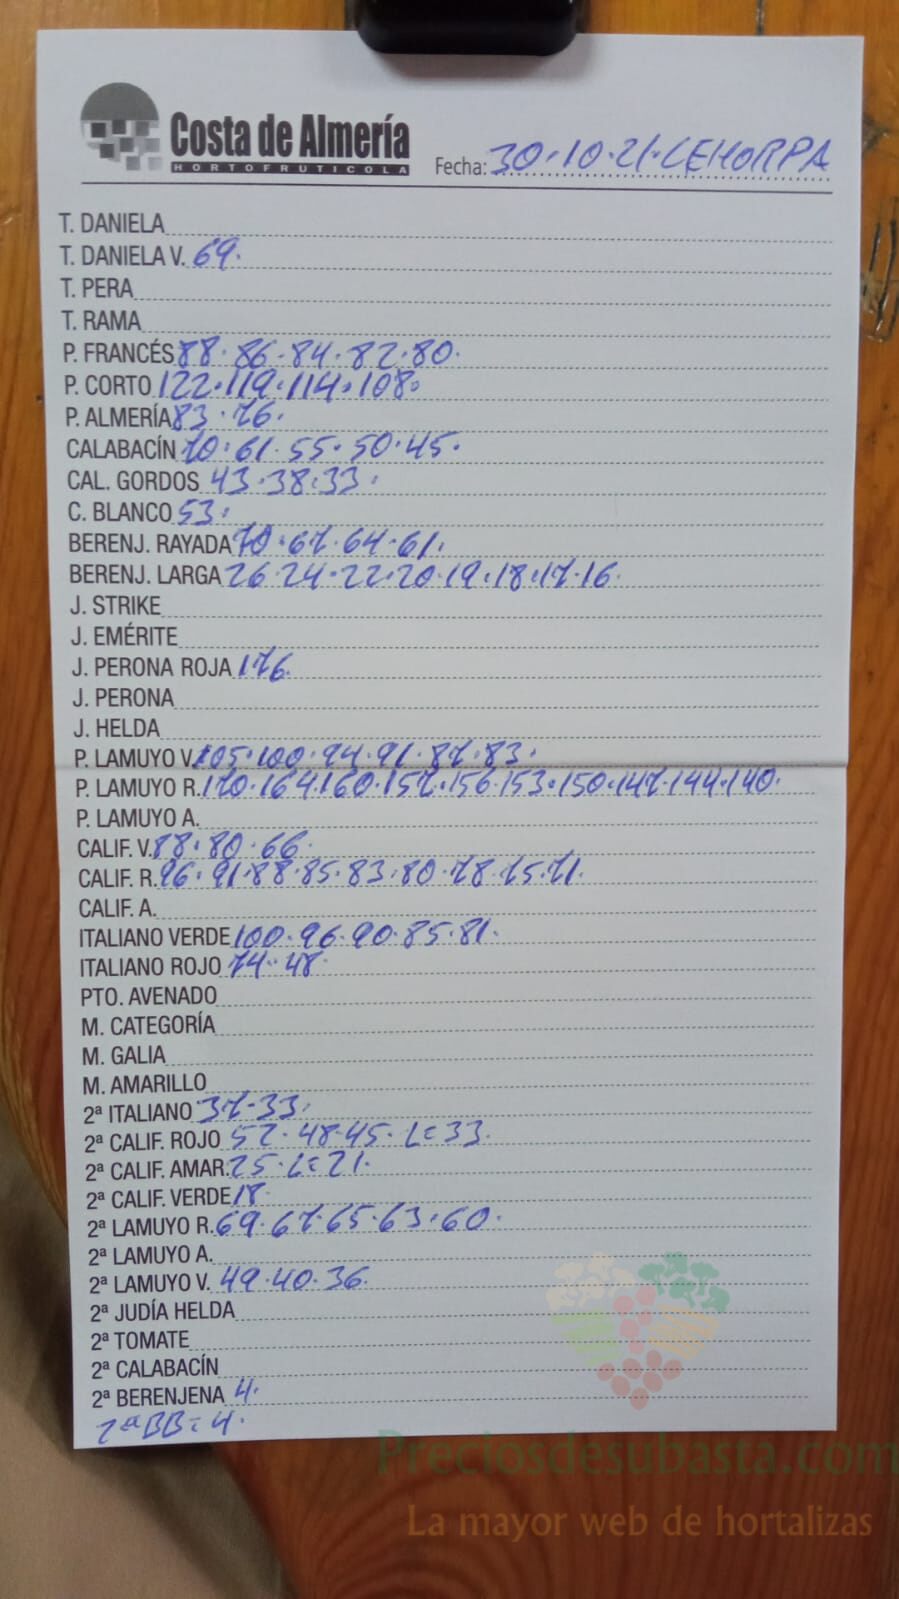 Costa de Almería
HORTOFRUTICOLA
Fecha: 30.10.21.LEHORPA
T. DANIELA
T. DANIELA V. 69.
T. PERA
T. RAMA
P. FRANCÉS 88.86.84.82.80.
P. CORTO 122.119.114.108.
P. ALMERÍA 83.76.
CALABACÍN 70.61.55.50.45.
CAL. GORDOS 43.38.33.
C. BLANCO 53.
BERENJ. RAYADA 70.67.64.61.
BERENJ. LARGA 26.24.22.20.19.18.17.16.
J. STRIKE
J. EMÉRITE
J. PERONA ROJA 176.
J. PERONA
J. HELDA
P. LAMUYO V. 105.100.94.91.87.83.
P. LAMUYO R. 170.164.160.157.156.153.150.147.144.140.
P. LAMUYO A.
CALIF. V. 88.80.66.
CALIF. R. 96.91.88.85.83.80.78.75.71.
CALIF. A.
ITALIANO VERDE 100.96.90.85.81.
ITALIANO ROJO 74.48.
PTO. AVENADO
M. CATEGORÍA
M. GALIA
M. AMARILLO
2ª ITALIANO 37.33.
2ª CALIF. ROJO 52.48.45.L=33.
2ª CALIF. AMAR. 25.L=21.
2ª CALIF. VERDE 18.
2ª LAMUYO R. 69.67.65.63.60.
2ª LAMUYO A.
2ª LAMUYO V. 49.40.36.
2ª JUDÍA HELDA
2ª TOMATE
2ª CALABACÍN
2ª BERENJENA 4.
2ª BB=4.
Preciosdesubasta.com
La mayor web de hortalizas